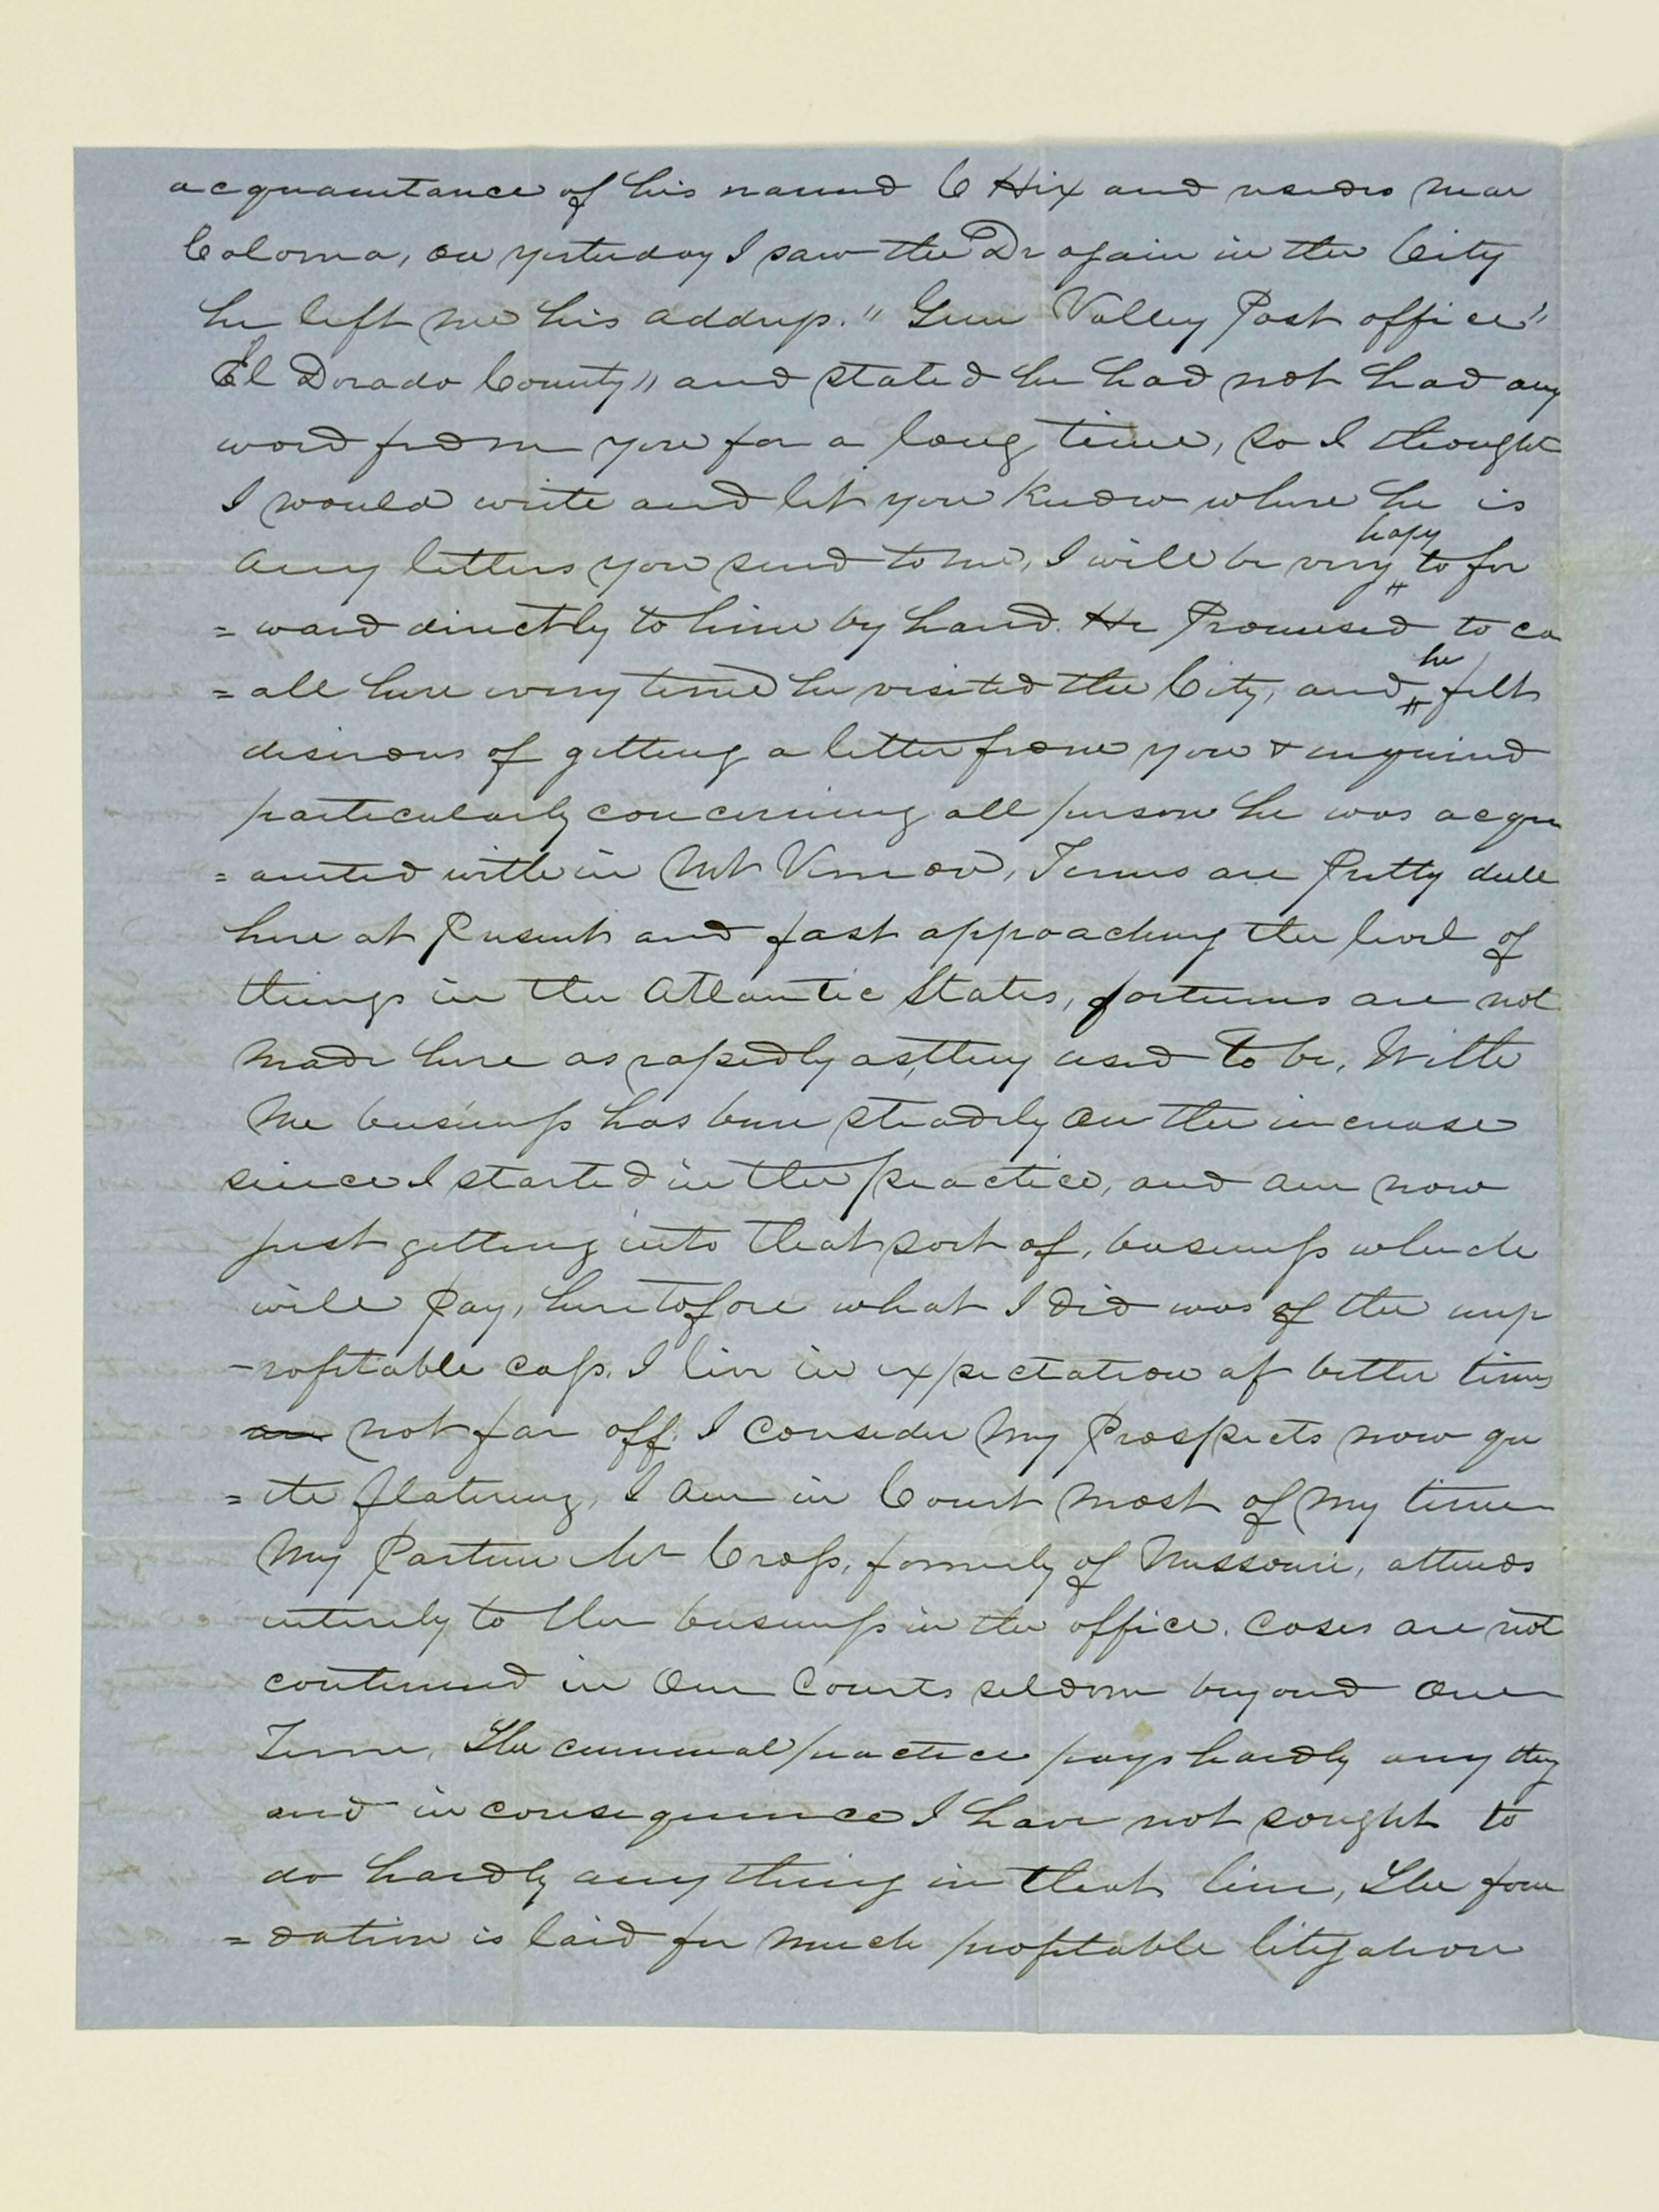 acquaintance of his named C Hix and resides near
Coloma, on yesterday I saw the Dr again in the City
he left me his address. " Green Valley Post office"
El Dorado County" and stated he had not had any
word from you for a long time, so I thought
I would write and let you know where he is
hapy
any letters you send to me, I will be very to for
= ward directly to him by hand. He Promised to ca
he
= all here every time he visited the City, and felt
desirous of getting a letter from you & inquired
particularly concerning all person he was acqu
= ainted with in Mt Vernon, Times are Pretty dull
here at Present and fast approaching the level of
things in the Atlantic States, fortunes are not
made here as rapedly as they used to be, With
me business has been steadily on the increase
since I started in the practice, and am now
just getting into that sort of, business which
will Pay, heretofore what I did was of the unp
-rofitable class. I live in expectation of better times
are not far off. I consider my Prospects now qu
= ite flatering, I am in Court most of my time
My Partner Mr Cross, formerly of Missouri, attends
entirely to the business in the office. Cases are not
continued in Our Courts seldom beyond One
Term, The criminal practice pays hardly any thing
and in consequence I have not sought to
do hardly any thing in that line, The foun
= dation is laid for much profitable litigation